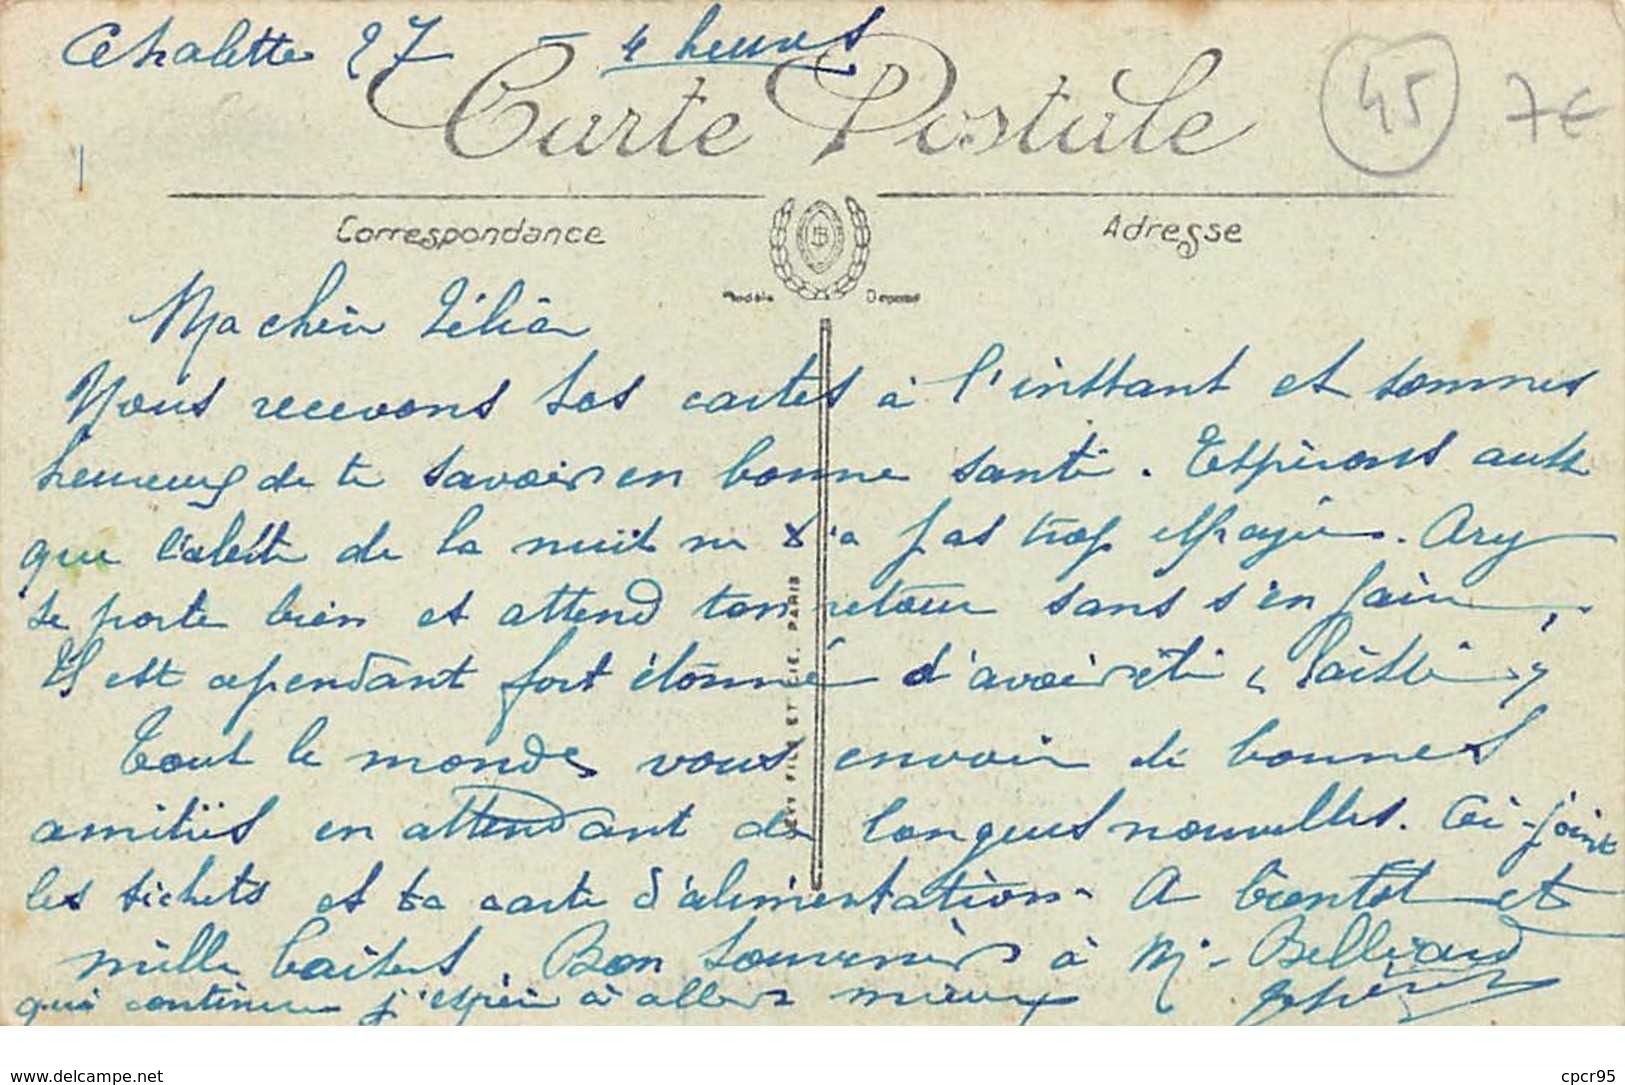 Chalette 27 - 4 heures
Carte Postale
45 7€
Correspondance
Adresse
Modèle Déposé
Ma chère Zélia
Nous recevons tes cartes à l'instant et sommes
heureux de te savoir en bonne santé. Espérons aussi
que l'alerte de la nuit ne t'a pas trop effrayée. Ary
se porte bien et attend ton retour sans s'en faire,
Il est cependant fort étonné d'avoir été "laissé"
Tout le monde vous envoie de bonnes
amitiés en attendant de longues nouvelles. Ci-joint
les tickets et ta carte d'alimentation. A bientôt et
mille baisers. Bon souvenir à M. Belliard
qui continue j'espère à aller mieux
LEVY FILS ET CIE. PARIS
www.delcampe.net
cpcr95